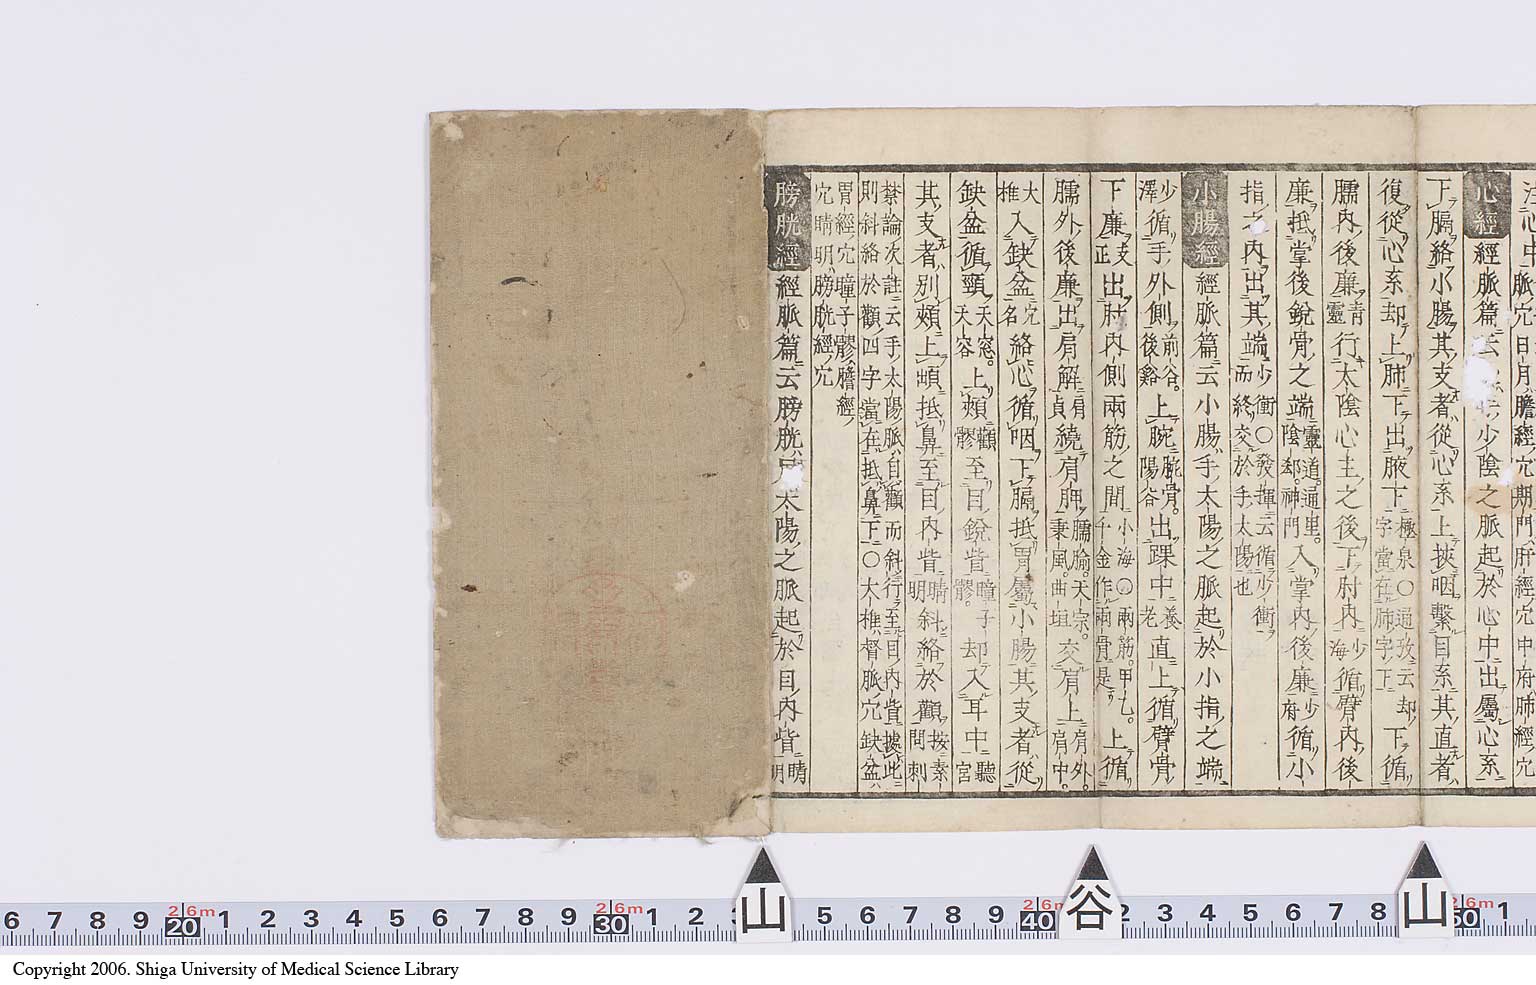 心經 經脈篇云 少陰之脈起於心中出屬心系
下膈絡小腸其支者從心系上挾咽繫目系其直者
復從心系却上肺下出腋下 極泉〇通攷云却下循字當在肺字下 下循
臑內後廉 青靈 行太陰心主之後下肘內 少海 循臂內後
廉抵掌後銳骨之端 靈道。通里。陰郄。神門 入掌內後廉 少府 循小
指之內出其端 少衝〇發揮云循少衝而終交於手太陽也
小腸經 經脈篇云小腸手太陽之脈起於小指之端
少澤 循手外側 前谷。後谿 上腕 腕骨。陽谷 出踝中 養老 直上循臂骨
下廉 支正 出肘內側兩筋之間 小海〇兩筋。甲乙。千金作兩骨是 上循
臑外後廉出肩解 肩貞 繞肩胛 臑腧。天宗。秉風。曲垣 交肩上 肩外。肩中。
大椎 入缺盆 穴名 絡心循咽下膈抵胃屬小腸其支者從
缺盆循頸 天窓。天容 上頰 顴髎 至目銳眥 瞳子髎。 却入耳中 聽宮
其支者別頰上䪼抵鼻至目內眥 睛明 斜絡於顴 按素問刺
禁論次註云手太陽脈自顴而斜行至目內眥據此
則斜絡於顴四字當在抵鼻下〇大椎督脈穴缺盆
胃經穴瞳子髎膽經
穴睛明膀胱經穴
膀胱經 經脈篇云膀胱足太陽之脈起於目內眥 睛明
山 谷 山
6 7 8 9 20 1 2 3 4 5 6 7 8 9 30 1 2 3 5 6 7 8 9 40 2 3 4 5 6 7 8 50 1
Copyright 2006. Shiga University of Medical Science Library